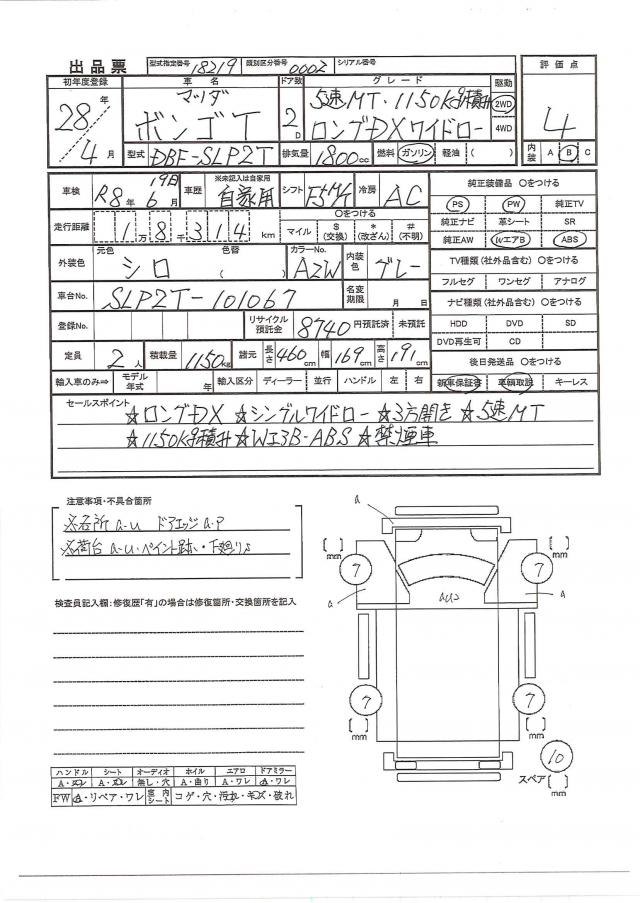 出品票 型式指定番号 18219 類別区分番号 0002 シリアル番号
評価点 4
内装 A・B・C
初年度登録 車名 ドア数 グレード 駆動
28年 マツダ 5速MT・1150kg積み 2WD
4月 ボンゴT 2D ロングDXワイドロー 4WD
型式 DBF-SLP2T 排気量 1800cc 燃料 ガソリン・軽油・( )
車検 R8年 6月 19日 車歴 ※未記入は自家用 自家用 シフト F5 M/T 冷房 AC
走行距離 1万8千314km
○をつける マイル $(交換) *(改ざん) #(不明)
外装色 元色 シロ 色替 ( ) カラーNo. A2W 内装色 グレー
車台No. SLP2T-101067 名変期限 月 日
登録No. リサイクル預託金 8740 円預託済 未預託
定員 2人 積載量 1150kg 諸元 長さ 460cm 幅 169cm 高さ 191cm
輸入車のみ⇒ モデル年式 年 輸入区分 ディーラー・並行 ハンドル 左・右
純正装備品 ○をつける
PS PW 純正TV
純正ナビ 革シート SR
純正AW WエアB ABS
TV種類(社外品含む) ○をつける
フルセグ ワンセグ アナログ
ナビ種類(社外品含む) ○をつける
HDD DVD SD
DVD再生可 CD
後日発送品 ○をつける
新車保証書 車輌取説 キーレス
セールスポイント
☆ロングDX ☆シングルワイドロー ☆3方開き ☆5速MT
☆1150kg積み ☆WエアB・ABS ☆禁煙車
注意事項・不具合箇所
※各所 a-u ドアエッジ a.P
※荷台 a-u・ペイント跡・下廻りS
検査員記入欄:修復歴「有」の場合は修復箇所・交換箇所を記入
a
mm 7 7 mm
a auS a
7 7
mm mm
10
スペア mm
ハンドル シート オーディオ ホイル エアロ ドアミラー
A・スレ A・スレ 無し・穴 A・曲り A・ワレ A・ワレ
FW A・リペア・ワレ 室内シート コゲ・穴・汚れ・キズ・破れ